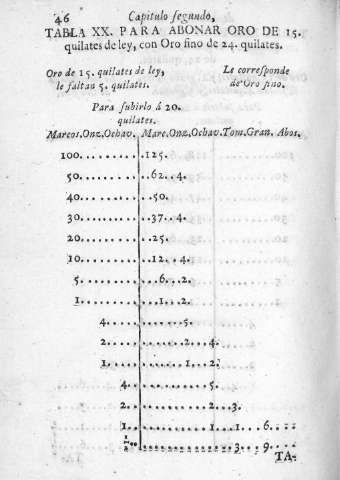 46 Capitulo segundo,
TABLA XX. PARA ABONAR ORO DE 15.
quilates de ley, con Oro fino de 24. quilates.
Oro de 15. quilates de ley, Le corresponde
le faltan 5. quilates. de Oro fino.
Para subirlo á 20.
quilates.
Marcos.Onz.Ochav. Marc.Onz.Ochav.Tom.Gran. Abos.
100..........125.
50..........62..4.
40..........50.
30..........37..4.
20..........25.
10..........12..4.
5..........6..2.
1..........1..2.
4..........5.
2..........2...4.
1..........1...2.
4..........5.
2..........2...3.
1..........1...1...6....
1/2..........3...9....
TA-